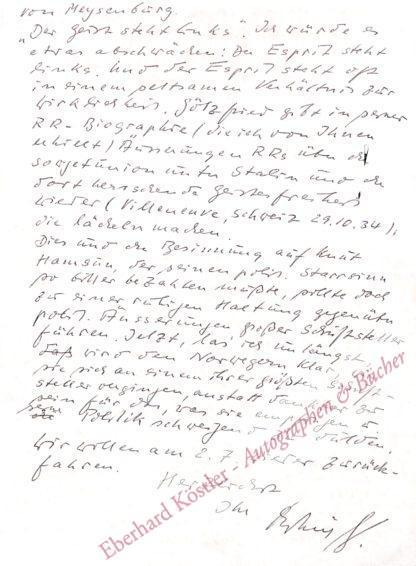 von Meysenburg.
"Der Geist steht links". Ich würde es
etwas abschwächen: Der Esprit steht
links. Und der Esprit steht oft
in einem seltsamen Verhältnis zur
Wirklichkeit. Götzfried gibt in seiner
RR-Biographie (die ich von Ihnen
erhielt) Äusserungen RRs über die
Sowjetunion unter Stalin und die
dort herrschende Geistesfreiheit
wieder (Villeneuve, Schweiz 29.10.34),
die lächeln machen.
Dies und die Besinnung auf Knut
Hamsun, der seinen polit. Starrsinn
so bitter bezahlen mußte, sollte doch
zu einer ruhigen Haltung gegenüber
polit. Äusserungen großer Schriftsteller
führen. Jetzt, las ich unlängst,
wird den Norwegern klar,
sie sich an einem ihrer größten
steller vergingen, anstatt dankbar zu
sein für das, was sie
Politik schweigend dulden.
Wir wollen am 2.7. wieder zurück-
fahren.
Herzlichst
Ihr
Eberhard Köstler - Autographen & Bücher